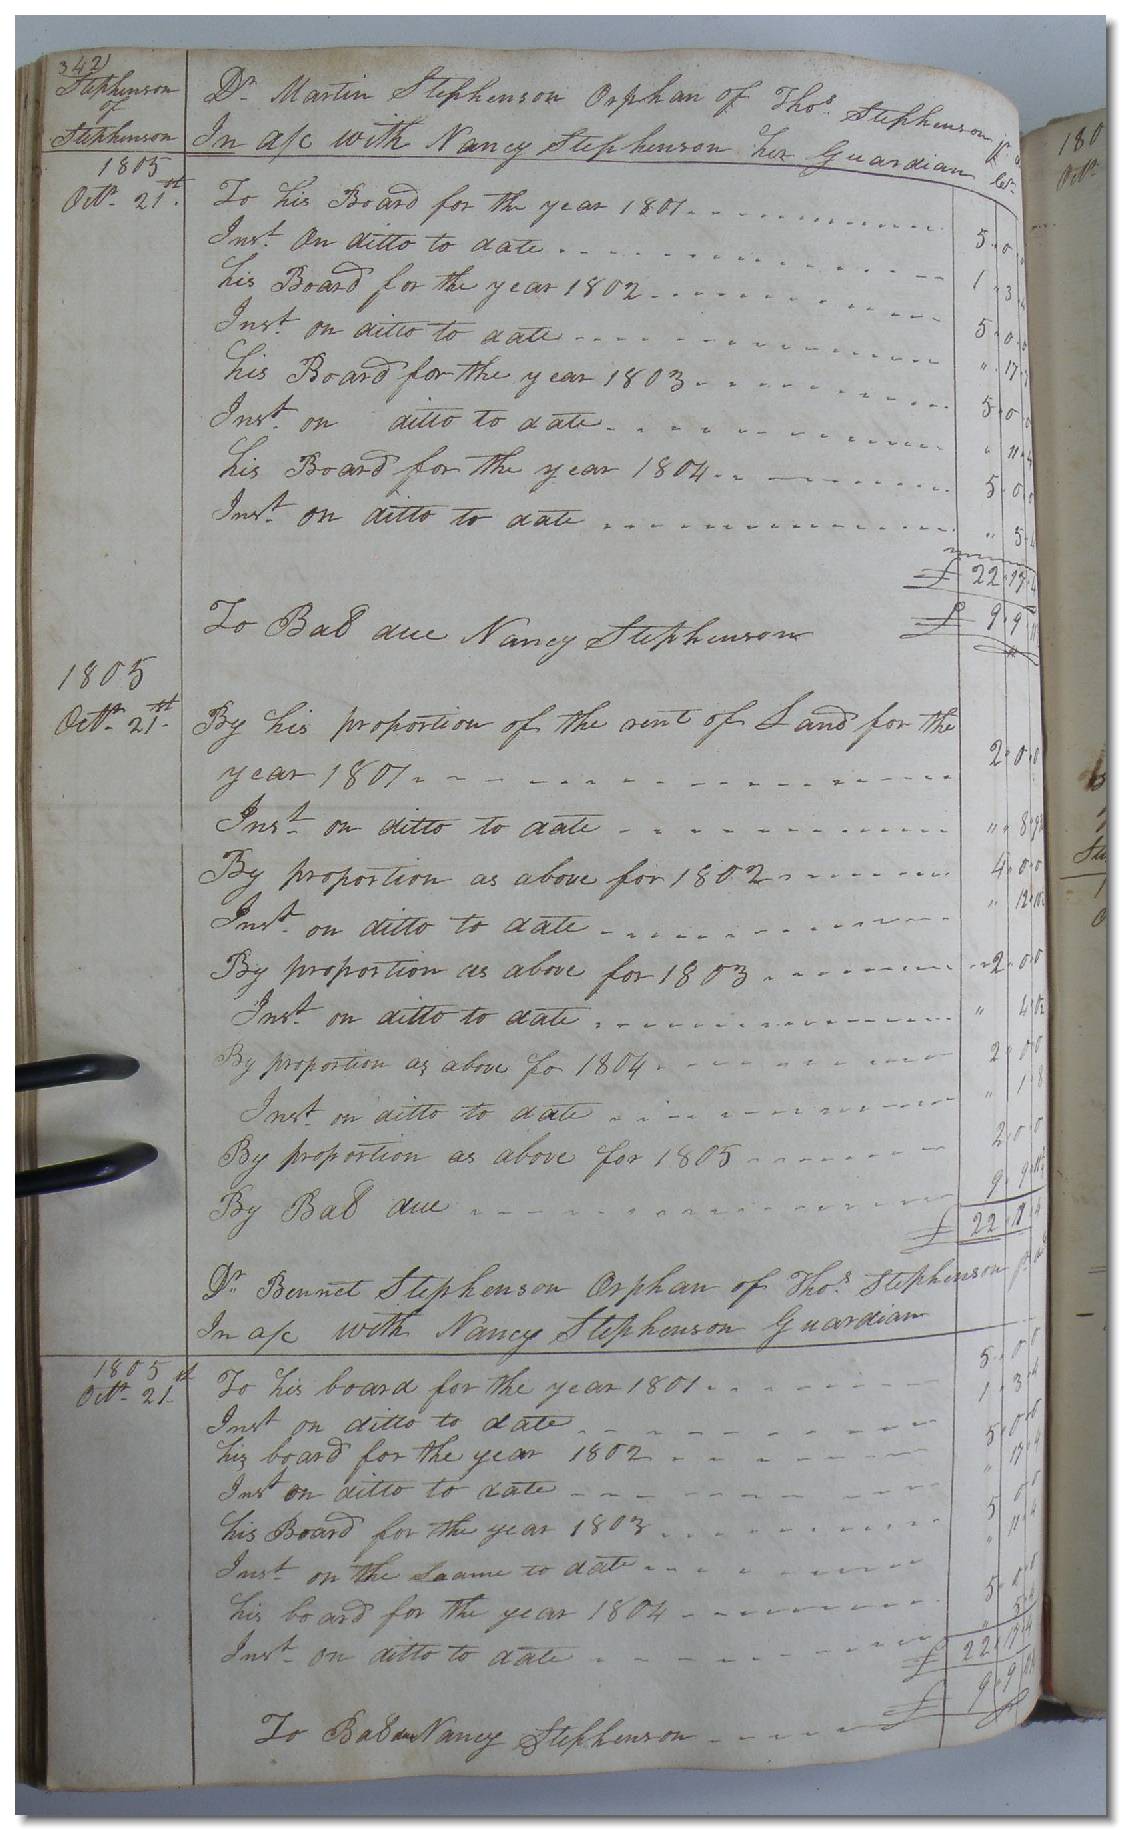 342
Stephenson
of
Stephenson
Dr. Martin Stephenson Orphan of Thos. Stephenson
In a/c with Nancy Stephenson her Guardian
1805
Octr. 21st.
To his Board for the year 1801 5 0
Inst. On ditto to date 1 3
his Board for the year 1802 5 0 0
Inst. on ditto to date " 17
his Board for the year 1803 5 0 0
Inst. on ditto to date " 11 4
his Board for the year 1804 5 0 0
Inst. on ditto to date " 5 4
£ 22 17 4
To Bal due Nancy Stephenson £ 9 9
1805
Octr. 21st.
By his proportion of the rent of Land for the
year 1801 2 0 0
Inst. on ditto to date " 8
By proportion as above for 1802 4 0 0
Inst. on ditto to date " 12
By proportion as above for 1803 2 0 0
Inst. on ditto to date " 4
By proportion as above fo 1804 2 0 0
Inst. on ditto to date " 1 8
By proportion as above for 1805 2 0 0
By Bal due 9 9
£ 22 17 4
Dr. Bennet Stephenson Orphan of Thos. Stephenson
In a/c with Nancy Stephenson Guardian
1805
Octr. 21st
To his board for the year 1801 5 0 0
Inst on ditto to date 1 3 4
his board for the year 1802 5 0 0
Inst on ditto to date " 17 4
his Board for the year 1803 5 0 0
Inst. on the Saame to date " 11 4
his board for the year 1804 5 0 0
Inst. on ditto to date " 5 4
£ 22 17 4
To Bal due Nancy Stephenson £ 9 9
180
Octr.